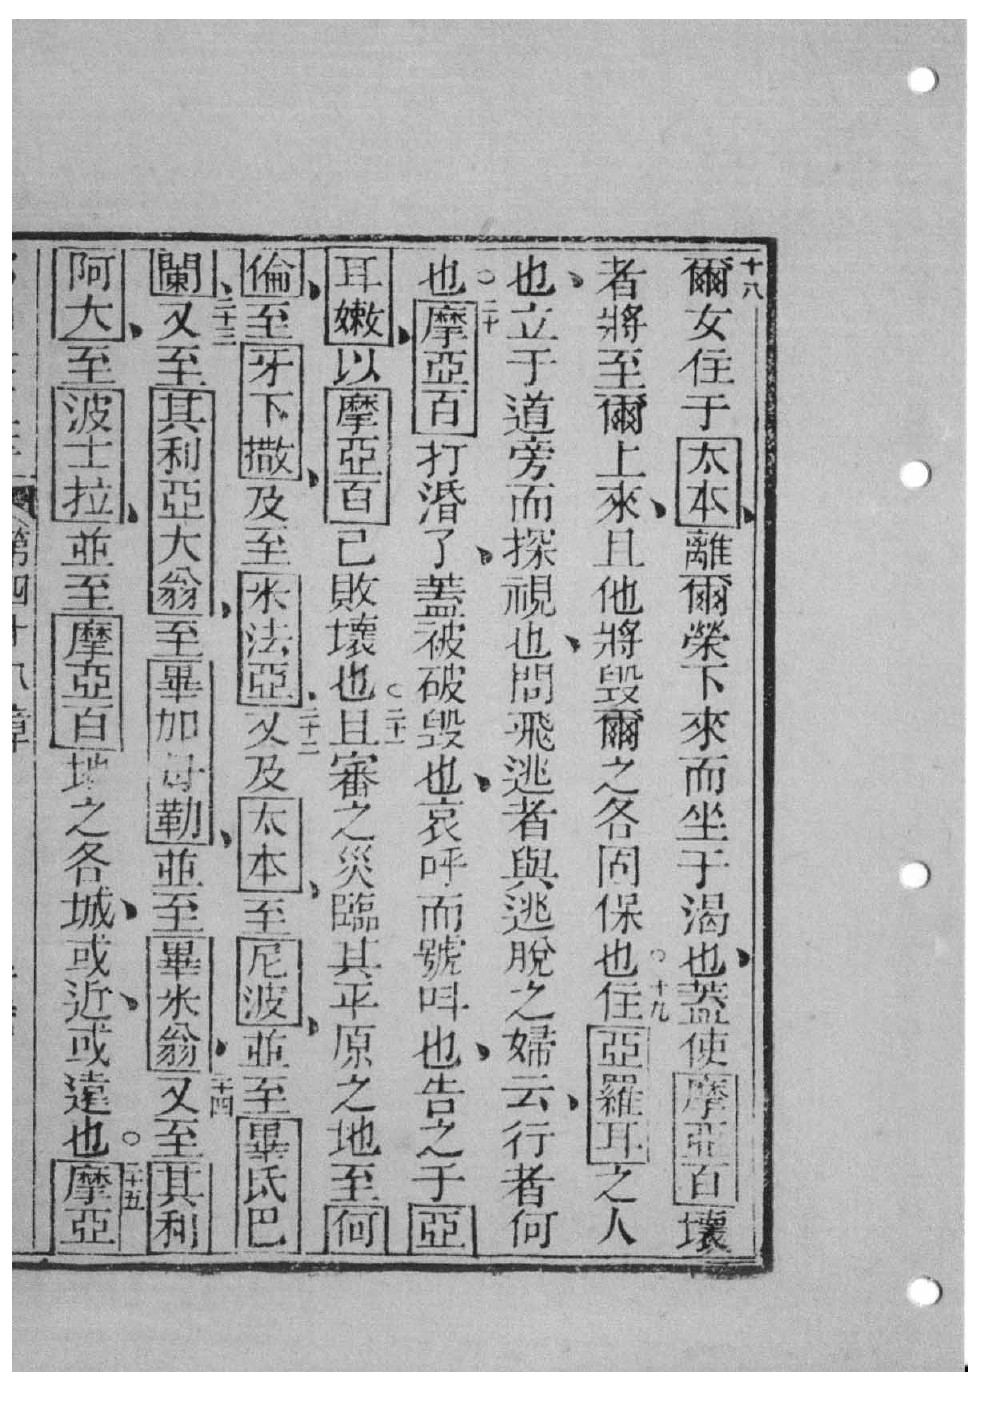 十八爾女住于太本離爾榮下來而坐于渴也蓋使摩亞百壞
者將至爾上來且他將毀爾之各固保也○十九住亞羅耳之人
也立于道旁而探視也問飛逃者與逃脫之婦云行者何
也○二十摩亞百打潛了蓋被破毀也哀呼而號呌也告之于亞
耳嫩以摩亞百已敗壞也○二十一且審之災臨其平原之地至何
倫至牙下撒及至米法亞二十二又及太本至尼波並至畢氐巴
闌二十三又至其利亞大翁至畢加母勒並至畢米翁二十四又至其利
阿大至波士拉並至摩亞百地之各城或近或遠也○二十五摩亞
第四十八章